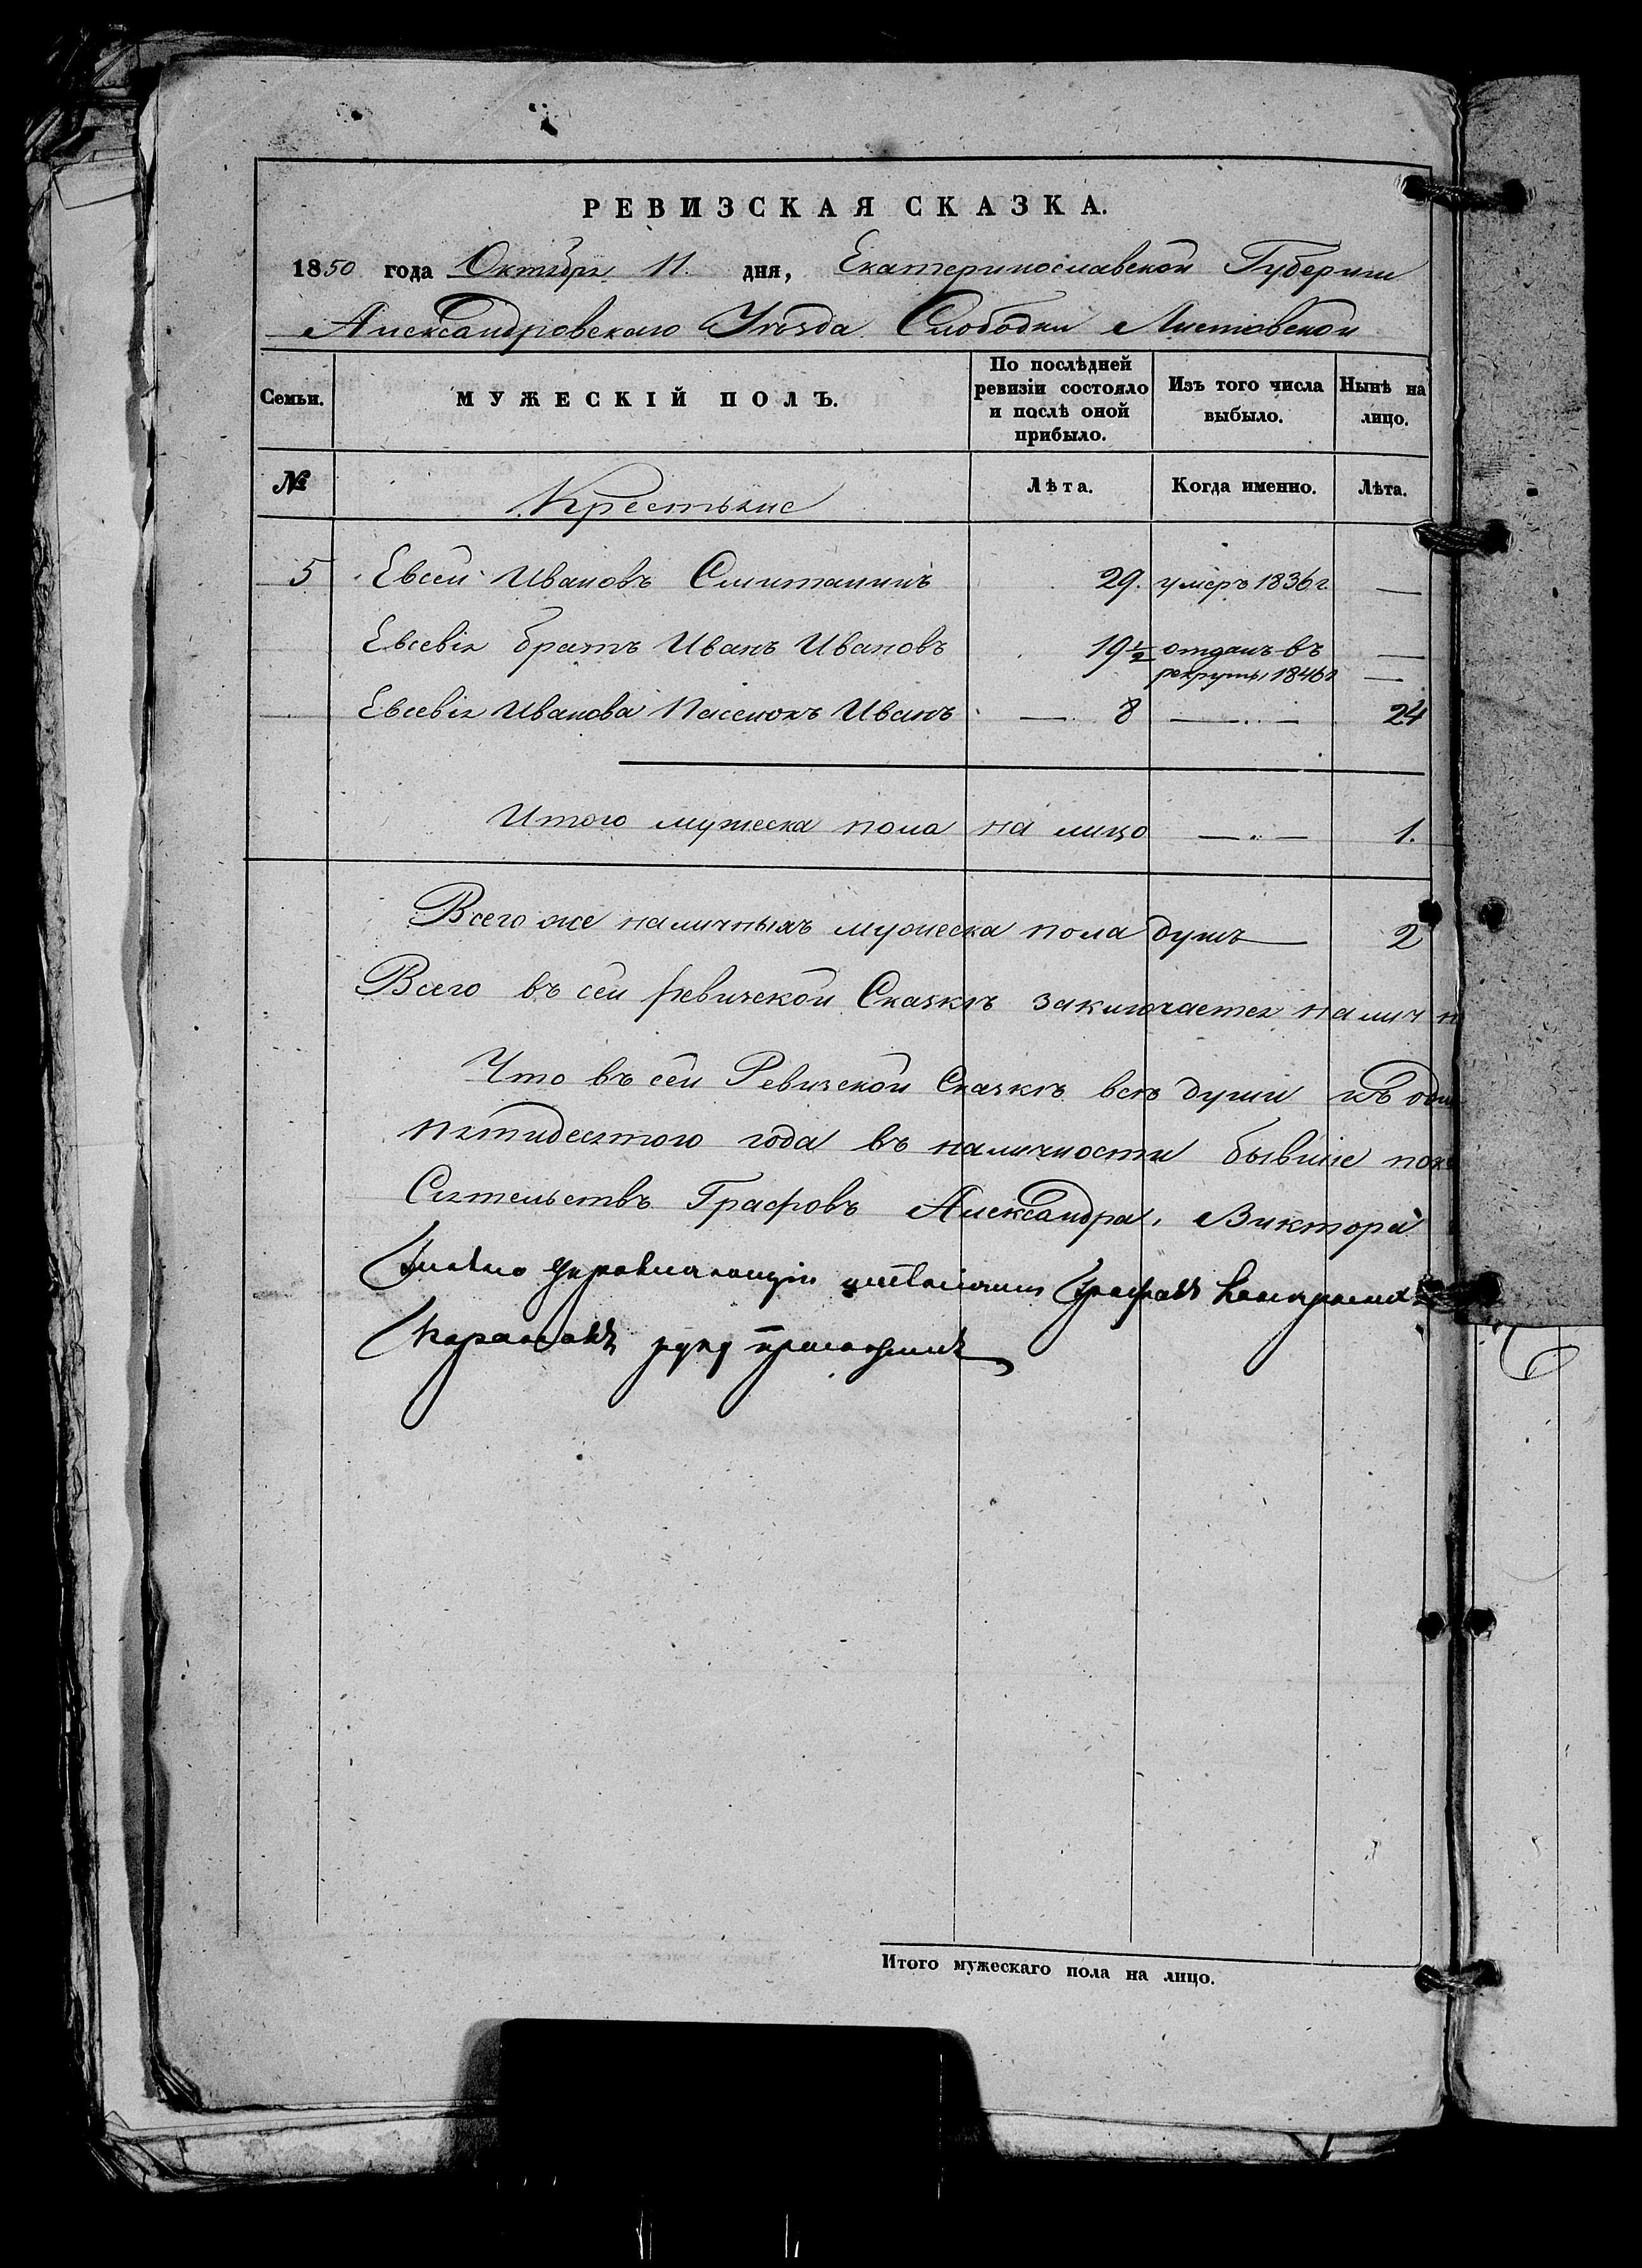 РЕВИЗСКАЯ СКАЗКА.
1850 года Октября 11 дня, Екатеринославской Губернии
Александровскаго Уѣзда Слободки Листовской
Семьи.
МУЖЕСКІЙ ПОЛЪ.
По послѣдней ревизіи состояло и послѣ оной прибыло.
Изъ того числа выбыло.
Нынѣ на лицо.
№
Крестьяне
Лѣта.
Когда именно.
Лѣта.
5 Евсей Ивановъ Смитанинъ 29. умеръ 1836 г. —
Евсевія братъ Иванъ Ивановъ 19½ отданъ въ —
рекруты 1846 г —
Евсевія Иванова Пасенокъ Иванъ — 8 — 24
Итого мужеска пола на лицо — „ — 1.
Всего же наличныхъ мужеска пола душъ — 2
Всего въ сей Ревизской Сказкѣ заключается налич
Что въ сей Ревизской Сказкѣ всѣ души
пятидесятого года въ наличности бывшие
Сіятельствъ Графовъ Александра, Виктора
Графовъ
руку приложилъ
Итого мужескаго пола на лицо.